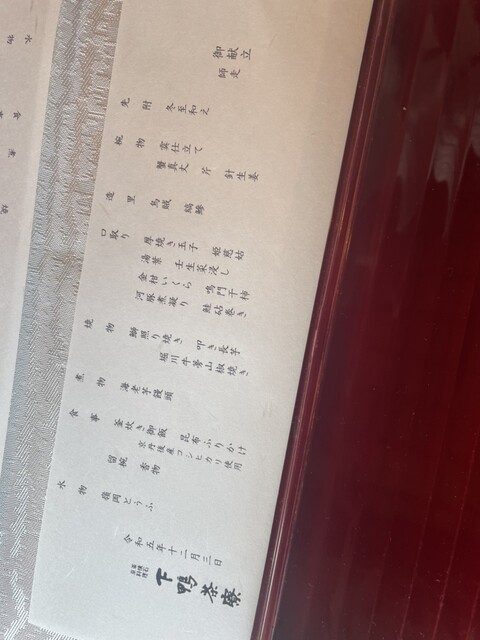 御献立
師走
先附 冬至和え
椀物 霙仕立て
蟹真丈 芹 針生姜
造里 烏賊 縞鯵
口取り 厚焼き玉子 姫慈姑
湯葉 壬生菜浸し
金柑いくら 鳴門干柿
河豚煮凝り 鮭砧巻き
焼物 鰤照り焼き 叩き長芋
堀川牛蒡山椒焼き
煮物 海老芋饅頭
食事 釜炊き御飯 昆布ふりかけ
京丹後産コシヒカリ使用
留椀 香物
水物 嶺岡とうふ
令和五年十二月三日
下鴨茶寮